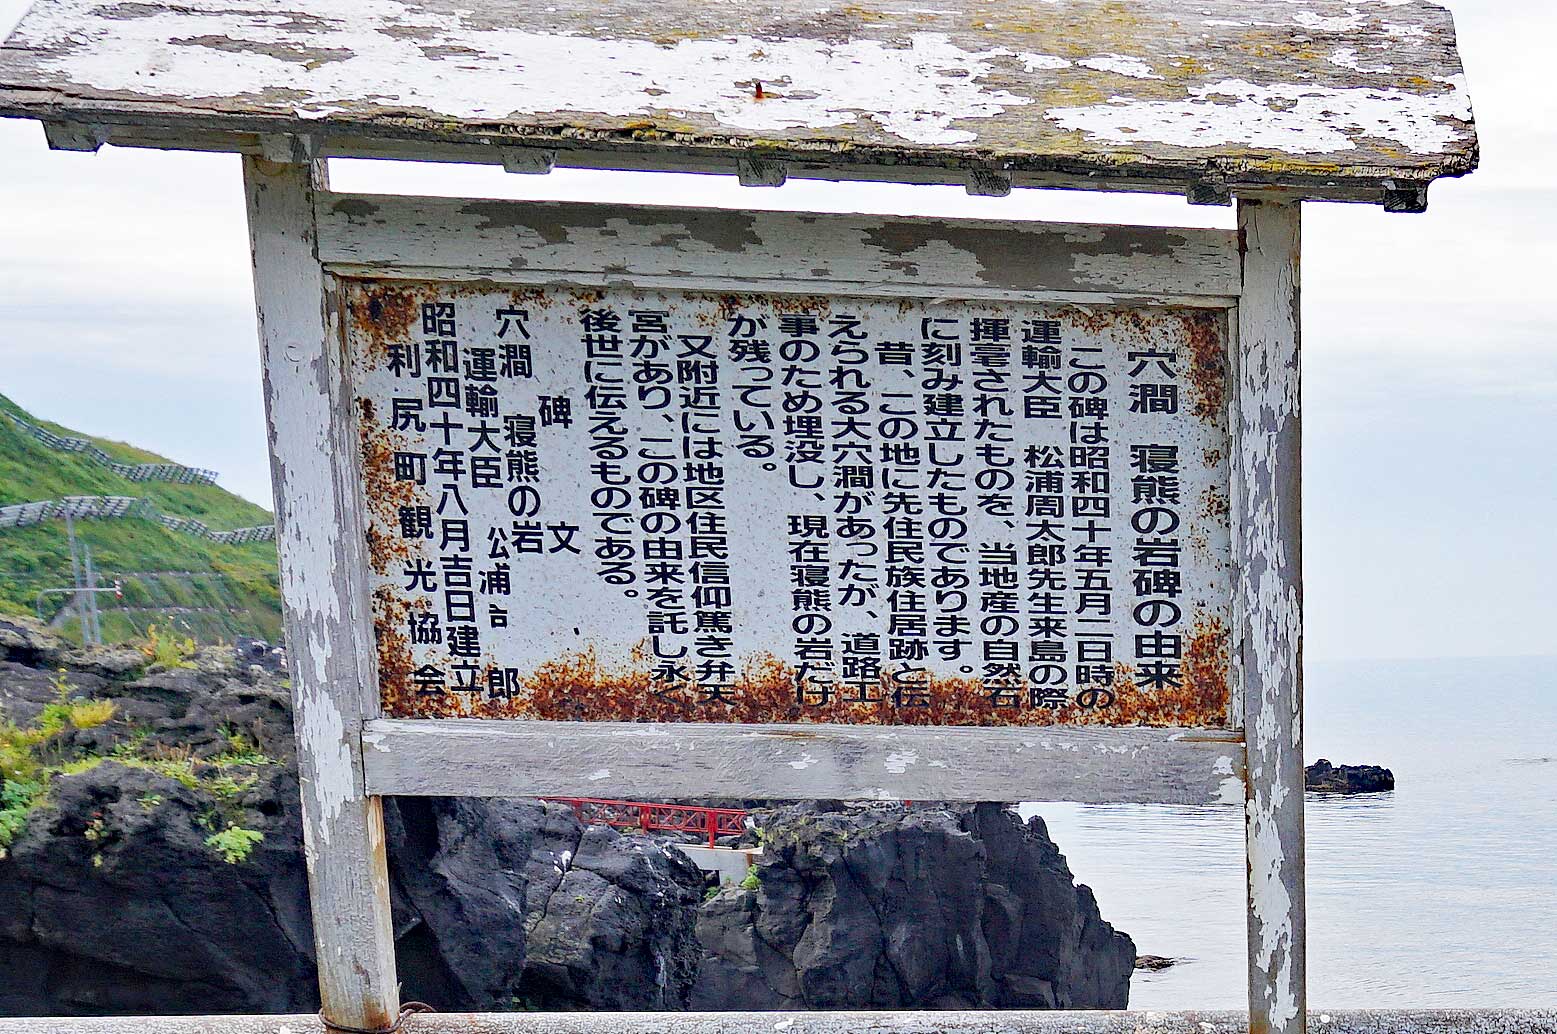 穴澗 寝熊の岩碑の由来
この碑は昭和四十年五月二日時の
運輸大臣 松浦周太郎先生来島の際
揮毫されたものを、当地産の自然石
に刻み建立したものであります。
昔、この地に先住民族住居跡と伝
えられる大穴澗があったが、道路工
事のため埋没し、現在寝熊の岩だけ
が残っている。
又附近には地区住民信仰篤き弁天
宮があり、この碑の由来を託し永く
後世に伝えるものである。
碑文
穴澗 寝熊の岩
運輸大臣 公浦 郎
昭和四十年八月吉日建立
利尻町観光協会